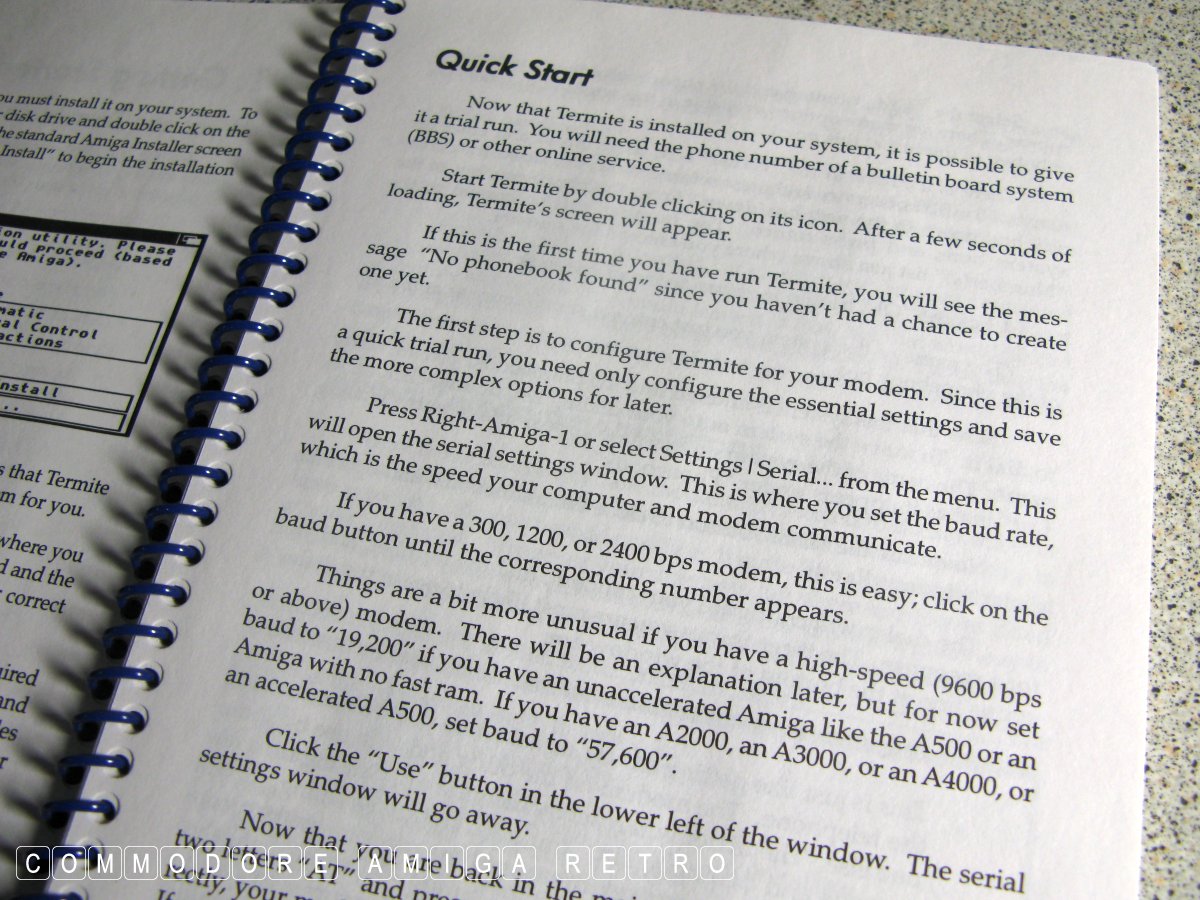 ou must install it on your system. To
disk drive and double click on the
he standard Amiga Installer screen
Install" to begin the installation
ion utility. Please
uld proceed (based
e Amiga).
matic
al Control
actions
nstall
..
s that Termite
m for you.
where you
d and the
correct
uired
and
les
r
Quick Start
Now that Termite is installed on your system, it is possible to give
it a trial run. You will need the phone number of a bulletin board system
(BBS) or other online service.
Start Termite by double clicking on its icon. After a few seconds of
loading, Termite's screen will appear.
If this is the first time you have run Termite, you will see the mes-
sage "No phonebook found" since you haven't had a chance to create
one yet.
The first step is to configure Termite for your modem. Since this is
a quick trial run, you need only configure the essential settings and save
the more complex options for later.
Press Right-Amiga-1 or select Settings | Serial... from the menu. This
will open the serial settings window. This is where you set the baud rate,
which is the speed your computer and modem communicate.
If you have a 300, 1200, or 2400 bps modem, this is easy; click on the
baud button until the corresponding number appears.
Things are a bit more unusual if you have a high-speed (9600 bps
or above) modem. There will be an explanation later, but for now set
baud to "19,200" if you have an unaccelerated Amiga like the A500 or an
Amiga with no fast ram. If you have an A2000, an A3000, or an A4000, or
an accelerated A500, set baud to "57,600".
Click the "Use" button in the lower left of the window. The serial
settings window will go away.
Now that you are back in the
two letters "AT" and
rectly, your
If
COMMODORE AMIGA RETRO